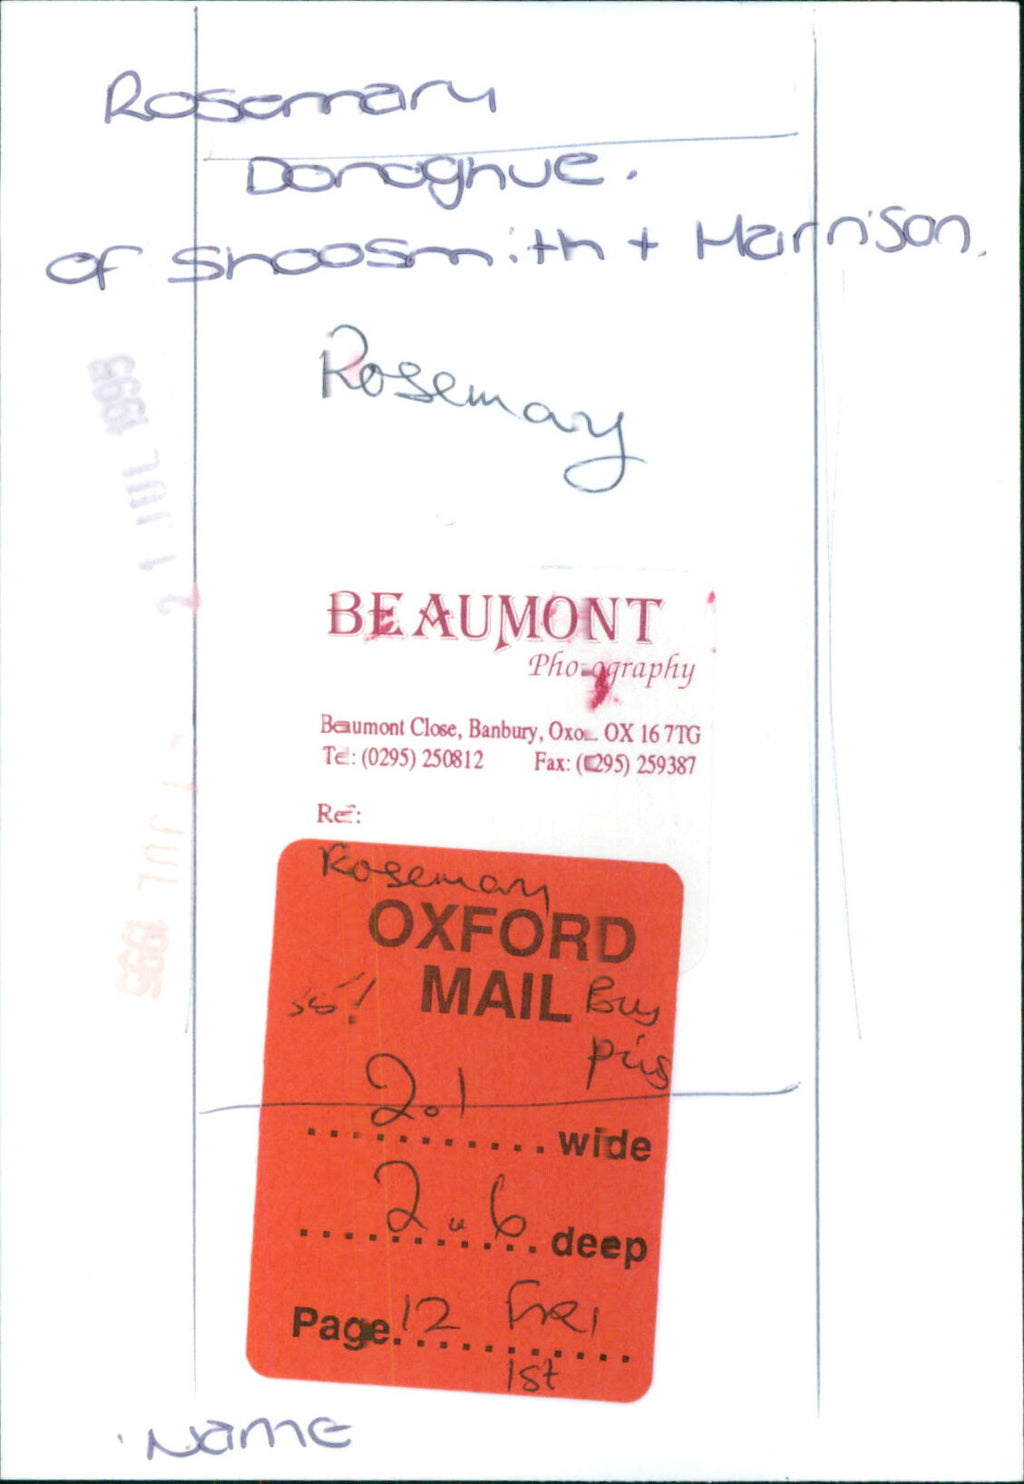 Rosemary
Donoghue.
of Shoosmith + Harrison.
Rosemary
21 JUL 1995
BEAUMONT
Photography
Beaumont Close, Banbury, Oxon. OX 16 7TG
Tel: (0295) 250812 Fax: (0295) 259387
Ref:
JUL 1995
Rosemary
OXFORD
MAIL
Buy
2.1 wide
2.6 deep
Page 12 FRI
1st
NAME